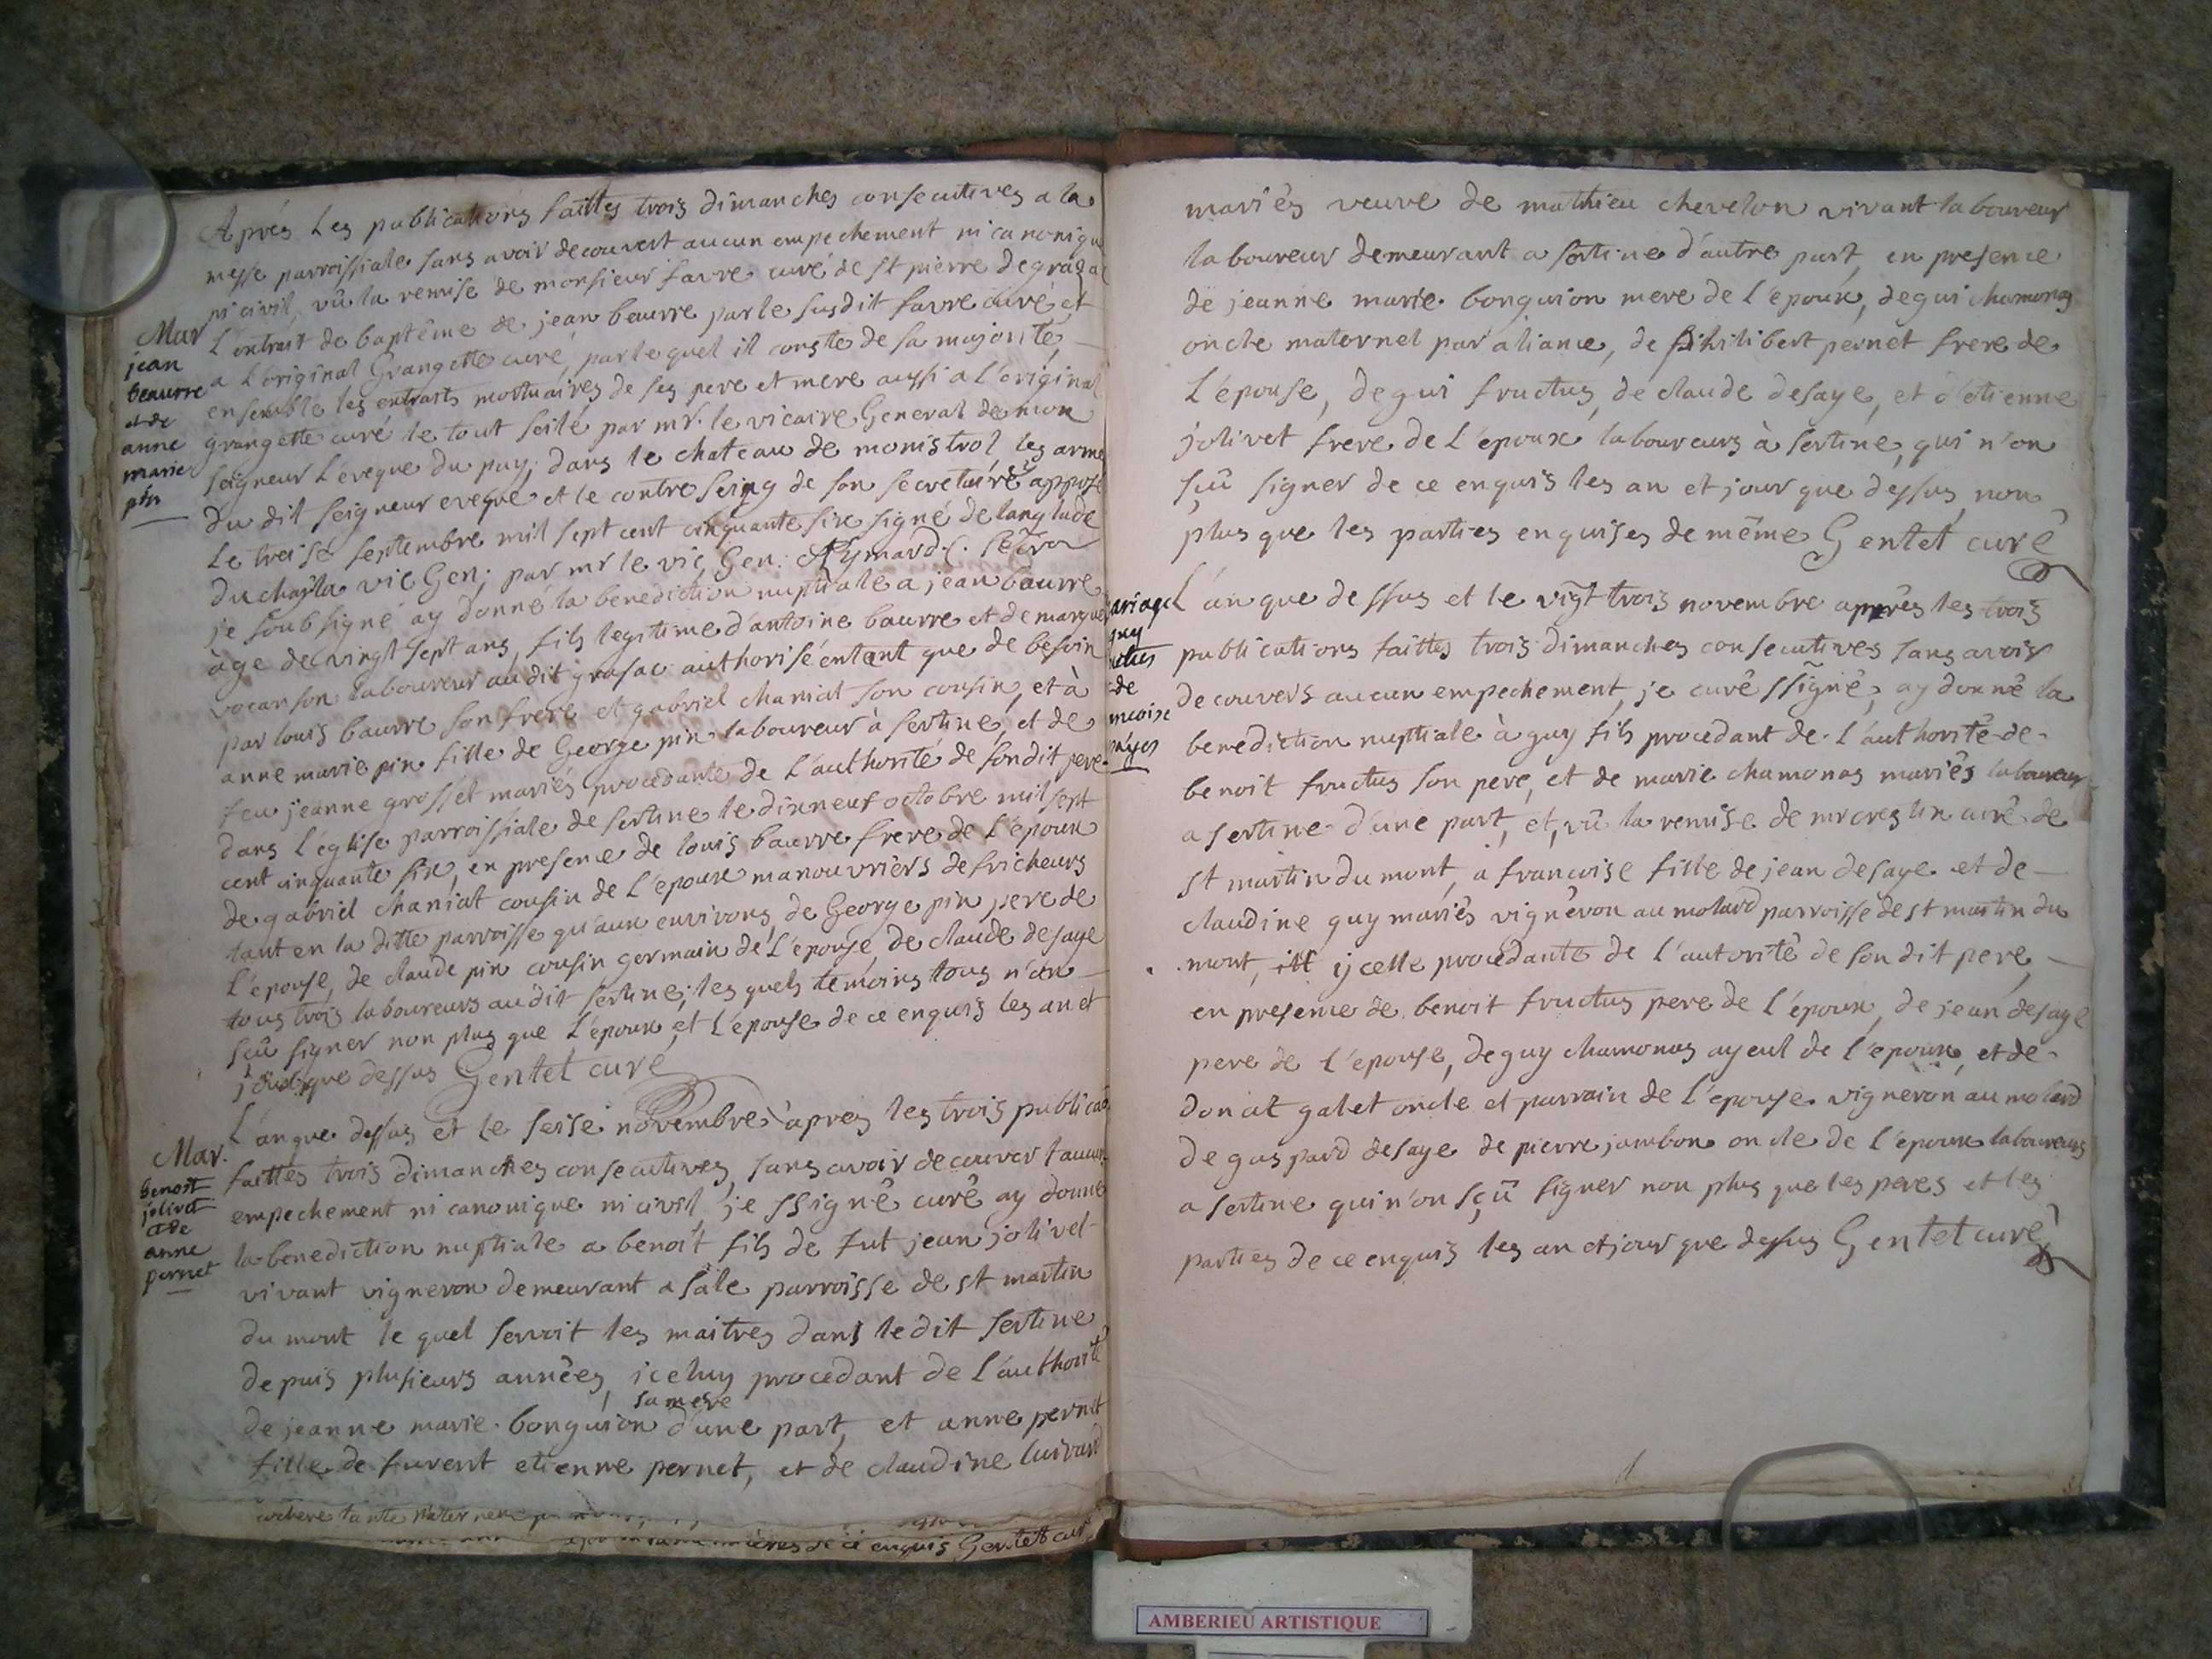 Aprés les publications faittes trois dimanches consecutives a la
messe parroissiale sans avoir decouvert aucun empechement ni canonique
ni civil, vû la remise de monsieur favre curé de st pierre de grazac
Mar
jean
beaurre
et de
anne
marie
pin
L'entrait de baptême de jean beaurre par le susdit favre curé, et
a l'original Grangette curé, par le quel il conste de sa majorité,
ensemble les entraits mortuaires de ses pere et mere aussi a l'original
grangette curé le tout scilé par mr. le vicaire General de mon
seigneur L'eveque du puy, dans le chateau de monistrol, les arme
du dit seigneur eveque et le contre seing de son secretaire apposé
Le treise septembre mil sept cent cinquante six signé de langlade
du chayla vic Gen; par mr le vic, Gen. Aymard.
je soub signé ay donné la benediction nuptiale a jean baurre
âge de vingt sept ans, fils legitime d'antoine baurre et de margue
vocanson laboureur au dit grasac authorisé entant que de besoin
par louis baurre son frere et gabriel chaniat son cousin, et à
anne marie pin fille de George pin laboureur à sertine, et de
feu jeanne grosset mariés procedante de l'authorité de son dit pere
dans l'église parroissiale de sertine le dixneuf octobre mil sept
cent cinquante six, en presence de louis baurre frere de l'epoux
de gabriel chaniat cousin de l'epoux manouvriers defricheurs
tant en la ditte parroisse qu'aux environs, de George pin pere de
l'epouse, de claude pin cousin germain de l'epouse, de claude desaye
tous trois laboureurs audit sertine; les quels temoins tous n'on
sçû signer non plus que l'epoux et l'epouse de ce enquis les an et
jour que dessus Gentet curé
Mar.
benoit
jolivet
et de
anne
pernet
L'an que dessus et le seise novembre apres les trois publica
faittes trois dimanches consecutives, sans avoir decouver t aucun
empechement ni canonique ni civil, je ssigné curé ay donné
la benediction nuptiale a benoit fils de fut jean jolivet
vivant vigneron demeurant a sale parroisse de st martin
du mont le quel servoit les maitres dans le dit sertine
depuis plusieurs années, iceluy procedant de l'authorité
sa mere
de jeanne marie bonguion d'une part, et anne pernet
fille de furent etienne pernet, et de claudine luivard
tante mater
de ce enquis Gentet cur
mariés veuve de mathieu chevelon vivant laboureur
laboureur demeurant a sertine d'autre part, en presence
de jeanne marie bonguion mere de l'epoux, de gui chamonas
oncle maternel par aliance, de philibert pernet frere de
l'epouse, de gui fructus, de claude desaye, et d'etienne
jolivet frere de l'epoux laboureurs à sertine, qui n'on
sçû signer de ce enquis les an et jour que dessus, non
plus que les parties enquises de même Gentet curé
ariage
guy
uctus
de
ncoise
saye
L'an que dessus et le vigt trois novembre apprés les trois
publications faittes trois dimanches consecutives sans avoir
decouvers aucun empechement, je curé ssigné, ay donné la
benediction nuptiale à guy fils procedant de l'authorité de
benoit fructus son pere, et de marie chamonas mariés laboureur
a sertine d'une part, et, vû la remise de mr crestin curé de
st martin du mont, a francoise fille de jean desaye et de
claudine guy mariés vigneron au molard parroisse de st martin du
mont, ill ijcelle procedante de l'autorité de son dit pere,
en presence de benoit fructus pere de l'époux, de jean desaye
pere de l'epouse, de guy chamonas ayeul de l'epoux, et de
donat galet oncle et parrain de l'epouse vigneron au molard
de gaspard desaye de pierre jambon oncle de l'epoux laboureurs
a sertine qui n'on sçû signer non plus que les peres et les
parties de ce enquis les an et jour que dessus Gentet curé
AMBERIEU ARTISTIQUE